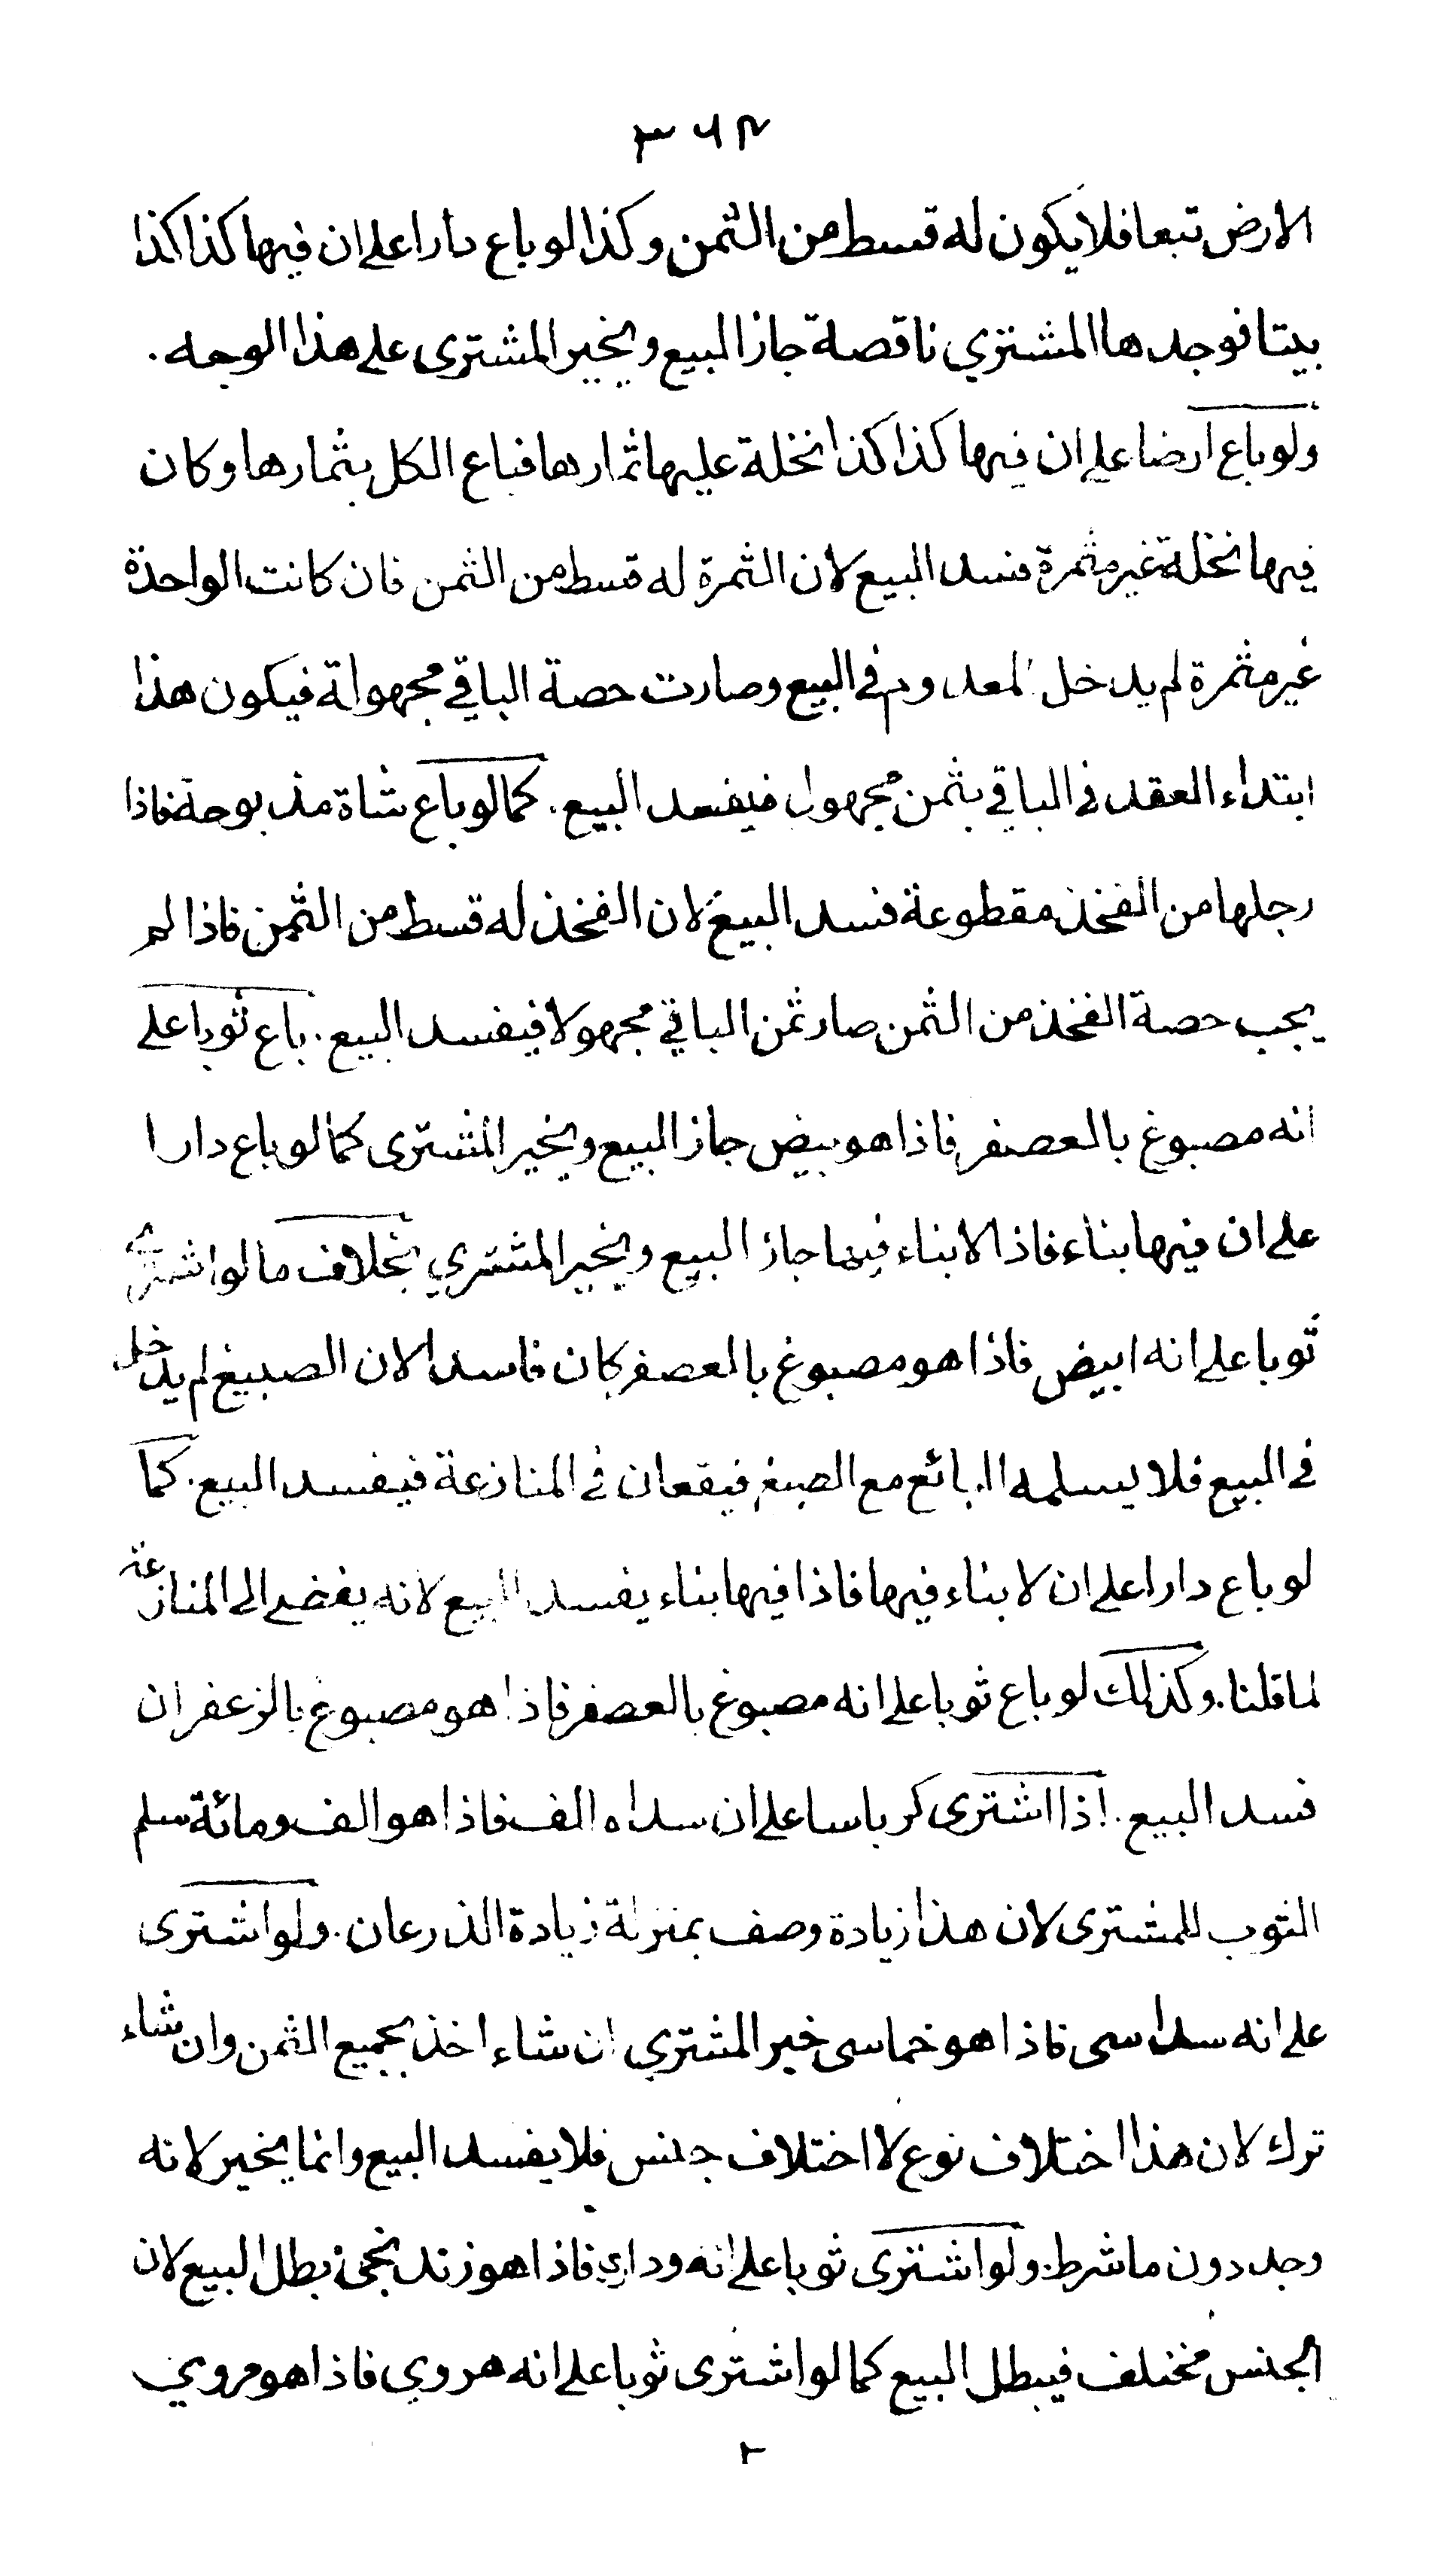 ٣٦٣
الارض تبعا فلا يكون له قسط من الثمن وكذا لو باع دارا على ان فيها كذا كذا
بيتا فوجدها المشتري ناقصة جاز البيع ويخير المشترى على هذا الوجه .
ولو باع ارضا على ان فيها كذا كذا نخلة عليها ثمارها فباع الكل بثمارها وكان
فيها نخلة غير مثمرة فسد البيع لان الثمرة له قسط من الثمن فان كانت الواحدة
غير مثمرة لم يدخل المعدوم في البيع وصارت حصة الباقي مجهولة فيكون هذا
ابتداء العقد في الباقي بثمن مجهول فيفسد البيع . كما لو باع شاة مذبوحة فاذا
رجلها من الفخذ مقطوعة فسد البيع لان الفخذ له قسط من الثمن فاذا لم
يجب حصة الفخذ من الثمن صار ثمن الباقي مجهولا فيفسد البيع . باع ثوبا على
انه مصبوغ بالعصفر فاذا هو بيض جاز البيع ويخير المشترى كما لو باع دارا
على ان فيها بناء فاذا لا بناء فيها جاز البيع ويخير المشتري بخلاف ما لو اشترى
ثوبا على انه ابيض فاذا هو مصبوغ بالعصفر كان فاسدا لان الصبيغ لم يدخل
في البيع فلا يسلمه البائع مع الصبغ فيقعان في المنازعة فيفسد البيع . كما
لو باع دارا على ان لا بناء فيها فاذا فيها بناء يفسد البيع لانه يفضى الى المنازعة
لما قلنا . وكذلك لو باع ثوبا على انه مصبوغ بالعصفر فاذا هو مصبوغ بالزعفران
فسد البيع . اذا اشترى كرباسا على ان سداه الف فاذا هو الف ومائة سلم
الثوب للمشترى لان هذا زيادة وصف بمنزلة زيادة الذرعان . ولو اشترى
على انه سداسى فاذا هو خماسى خير المشتري ان شاء اخذ بجميع الثمن وان شاء
ترك لان هذا اختلاف نوع لا اختلاف جنس فلا يفسد البيع وانما يخير لانه
وجد دون ما شرط . ولو اشترى ثوبا على انه وداري فاذا هو زندنيجى بطل البيع لان
الجنس مختلف فيبطل البيع كما لو اشترى ثوبا على انه هروي فاذا هو مروي
٢